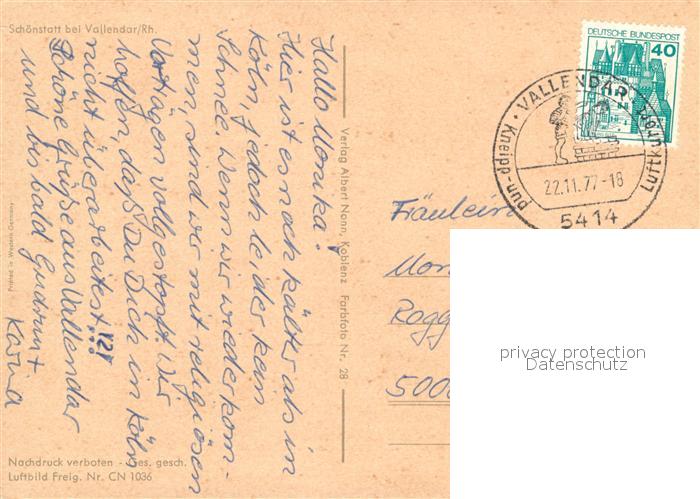 Schönstatt bei Vallendar/Rh.
Hallo Monika!
Hier ist es noch kälter als in
Köln, jedoch leider kein
Schnee. Wenn wir wiederkom-
men, sind wir mit religiösen
Vorträgen vollgestopft. Wir
hoffen, daß Du Dich in Köln
nicht überarbeitest!!!
Schöne Grüße aus Vallendar
und bis bald Gudrun +
Karin
Nachdruck verboten - Ges. gesch.
Luftbild Freig. Nr. CN 1036
Printed in Western Germany
Verlag Albert Nonn, Koblenz Farbfoto Nr. 28
DEUTSCHE BUNDESPOST
40
VALLENDAR
Kneipp- und Luftkurort
22.11.77-18
5414
Fräulein
Mon
Rogg
5000
privacy protection
Datenschutz